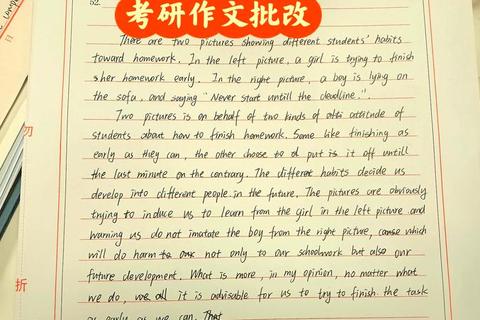 52.
考研作文批改
There are two pictures showing different students' habits
toward homework. In the left picture, a girl is trying to finish
her homework early. In the right picture, a boy is lying on
the sofa, and saying "Never start untill the deadline.".
Two pictures is on behalf of two kinds of attitude of
students about how to finish homework. Some like finishing as
early as they can, the other choose to put it off untill
the last minute on the contrary. The different habits decide us
develop into different people in the future. The pictures are obviously
trying to induce us to learn from the girl in the left picture and
warning us do not imatate the boy from the right picture, which
will do harm to not only to our schoolwork but also our
future development. What is more, in my opinion, no matter what
we do, it is advisable for us to try to finish the task
as early as we can. That
勿
折